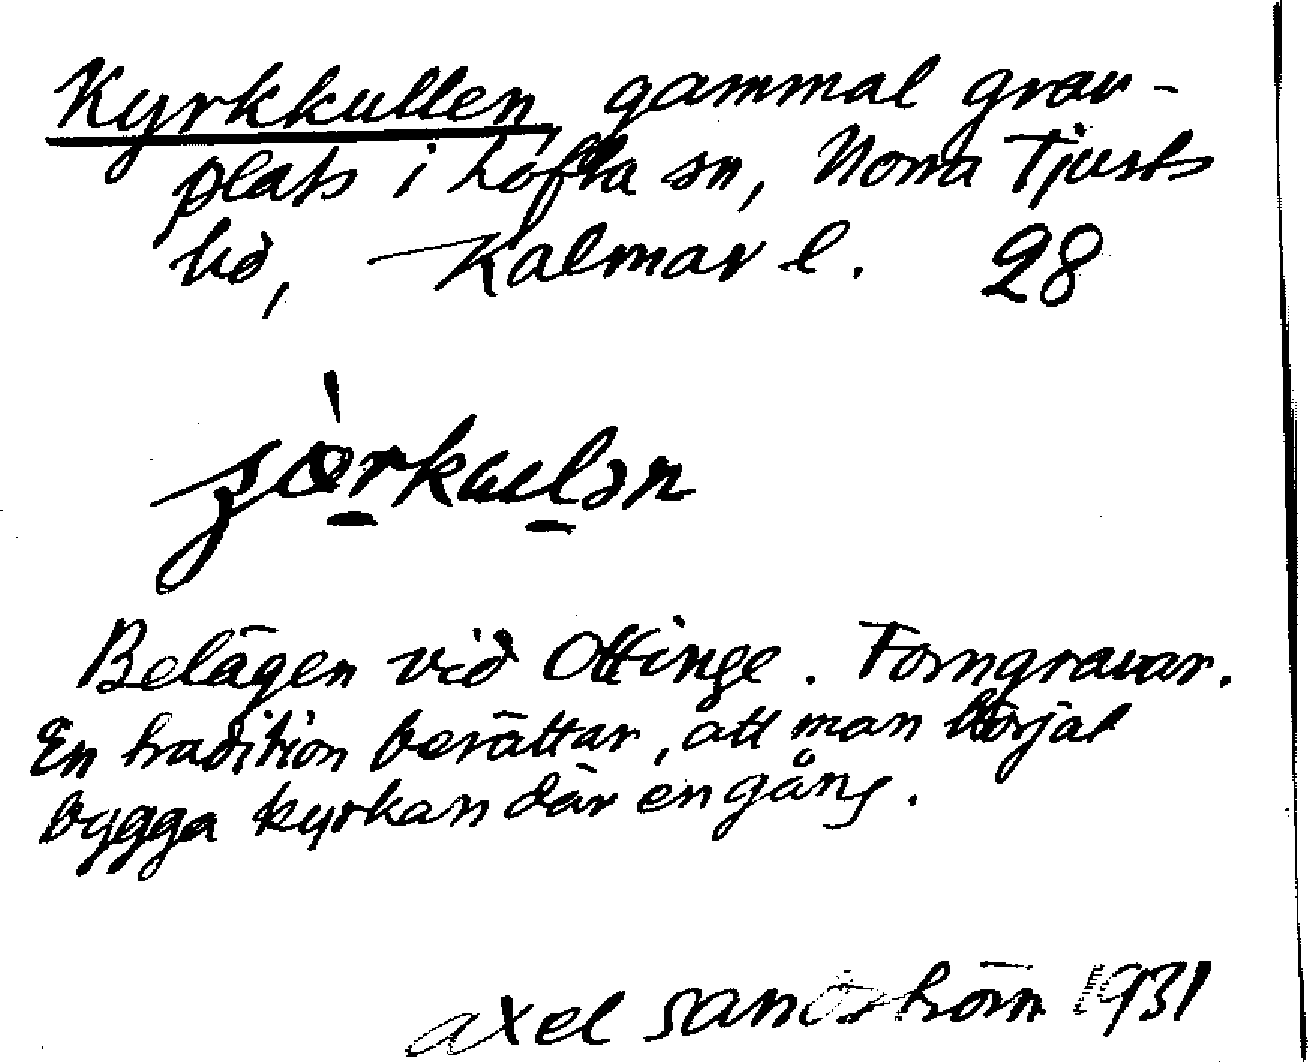 Kyrkkullen, gammal grav-
plats i Lofta sn, Norra Tjusts
hd, Kalmar l. 28
Belägen vid Ottinge. Forngravar.
En tradition berättar, att man börjat
bygga kyrkan där en gång.
Axel Sandström 1931